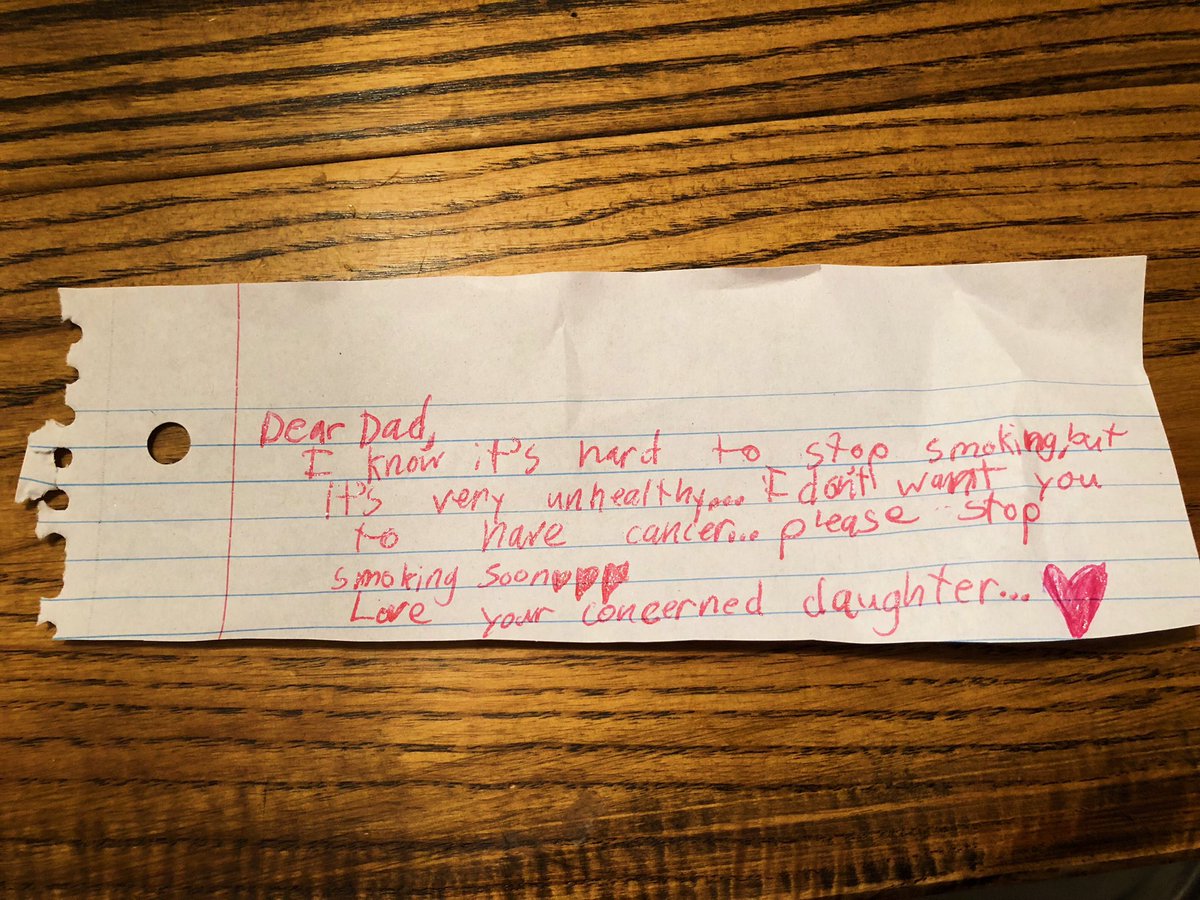 Dear Dad,
I know it's hard to stop smoking, but
it's very unhealthy... I don't want you
to have cancer... please stop
smoking soon♥♥♥
Love your concerned daughter... ♥